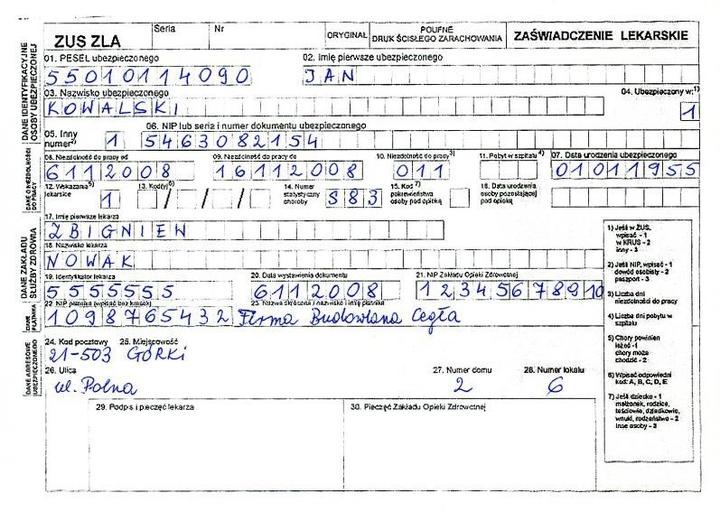 ZUS ZLA Seria Nr ORYGINAŁ POUFNE DRUK ŚCISŁEGO ZARACHOWANIA ZAŚWIADCZENIE LEKARSKIE
DANE IDENTYFIKACYJNE OSOBY UBEZPIECZONEJ
01. PESEL ubezpieczonego 02. Imię pierwsze ubezpieczonego
55010114090 JAN
03. Nazwisko ubezpieczonego 04. Ubezpieczony w:1)
KOWALSKI 1
05. Inny numer2) 1 06. NIP lub seria i numer dokumentu ubezpieczonego
5463082154
08. Niezdolność do pracy od 09. Niezdolność do pracy do 10. Niezdolność do pracy3) 11. Pobyt w szpitalu4) 07. Data urodzenia ubezpieczonego
6112008 16112008 011 01011955
12. Wskazania5) lekarskie 1 13. Kod(y)6) / / / 14. Numer statystyczny choroby S83 15. Kod7) pokrewieństwa osoby pod opieką 16. Data urodzenia osoby pozostającej pod opieką
DANE ZAKŁADU SŁUŻBY ZDROWIA
17. Imię pierwsze lekarza
ZBIGNIEW
18. Nazwisko lekarza
NOWAK
19. Identyfikator lekarza 20. Data wystawienia dokumentu 21. NIP Zakładu Opieki Zdrowotnej
5555555 6112008 12345678910
22. NIP płatnika (wpisać bez kresek) 23. Nazwa skrócona / nazwisko i imię płatnika
1098765432 Firma Budowlana Cegła
DANE ADRESOWE UBEZPIECZONEGO
24. Kod pocztowy 25. Miejscowość
21-503 GÓRKI
26. Ulica 27. Numer domu 28. Numer lokalu
ul. Polna 2 6
29. Podpis i pieczęć lekarza 30. Pieczęć Zakładu Opieki Zdrowotnej
1) Jeśli w ZUS,
wpisać - 1
w KRUS - 2
inny - 3
2) Jeśli NIP, wpisać - 1
dowód osobisty - 2
paszport - 3
3) Liczba dni
niezdolności do pracy
4) Liczba dni pobytu w
szpitalu
5) Chory powinien
leżeć -1
chory może
chodzić - 2
6) Wpisać odpowiedni
kod: A, B, C, D, E
7) Jeśli dziecko - 1
małżonek, rodzice,
teściowie, dziadkowie,
wnuki, rodzeństwo - 2
inne osoby - 3